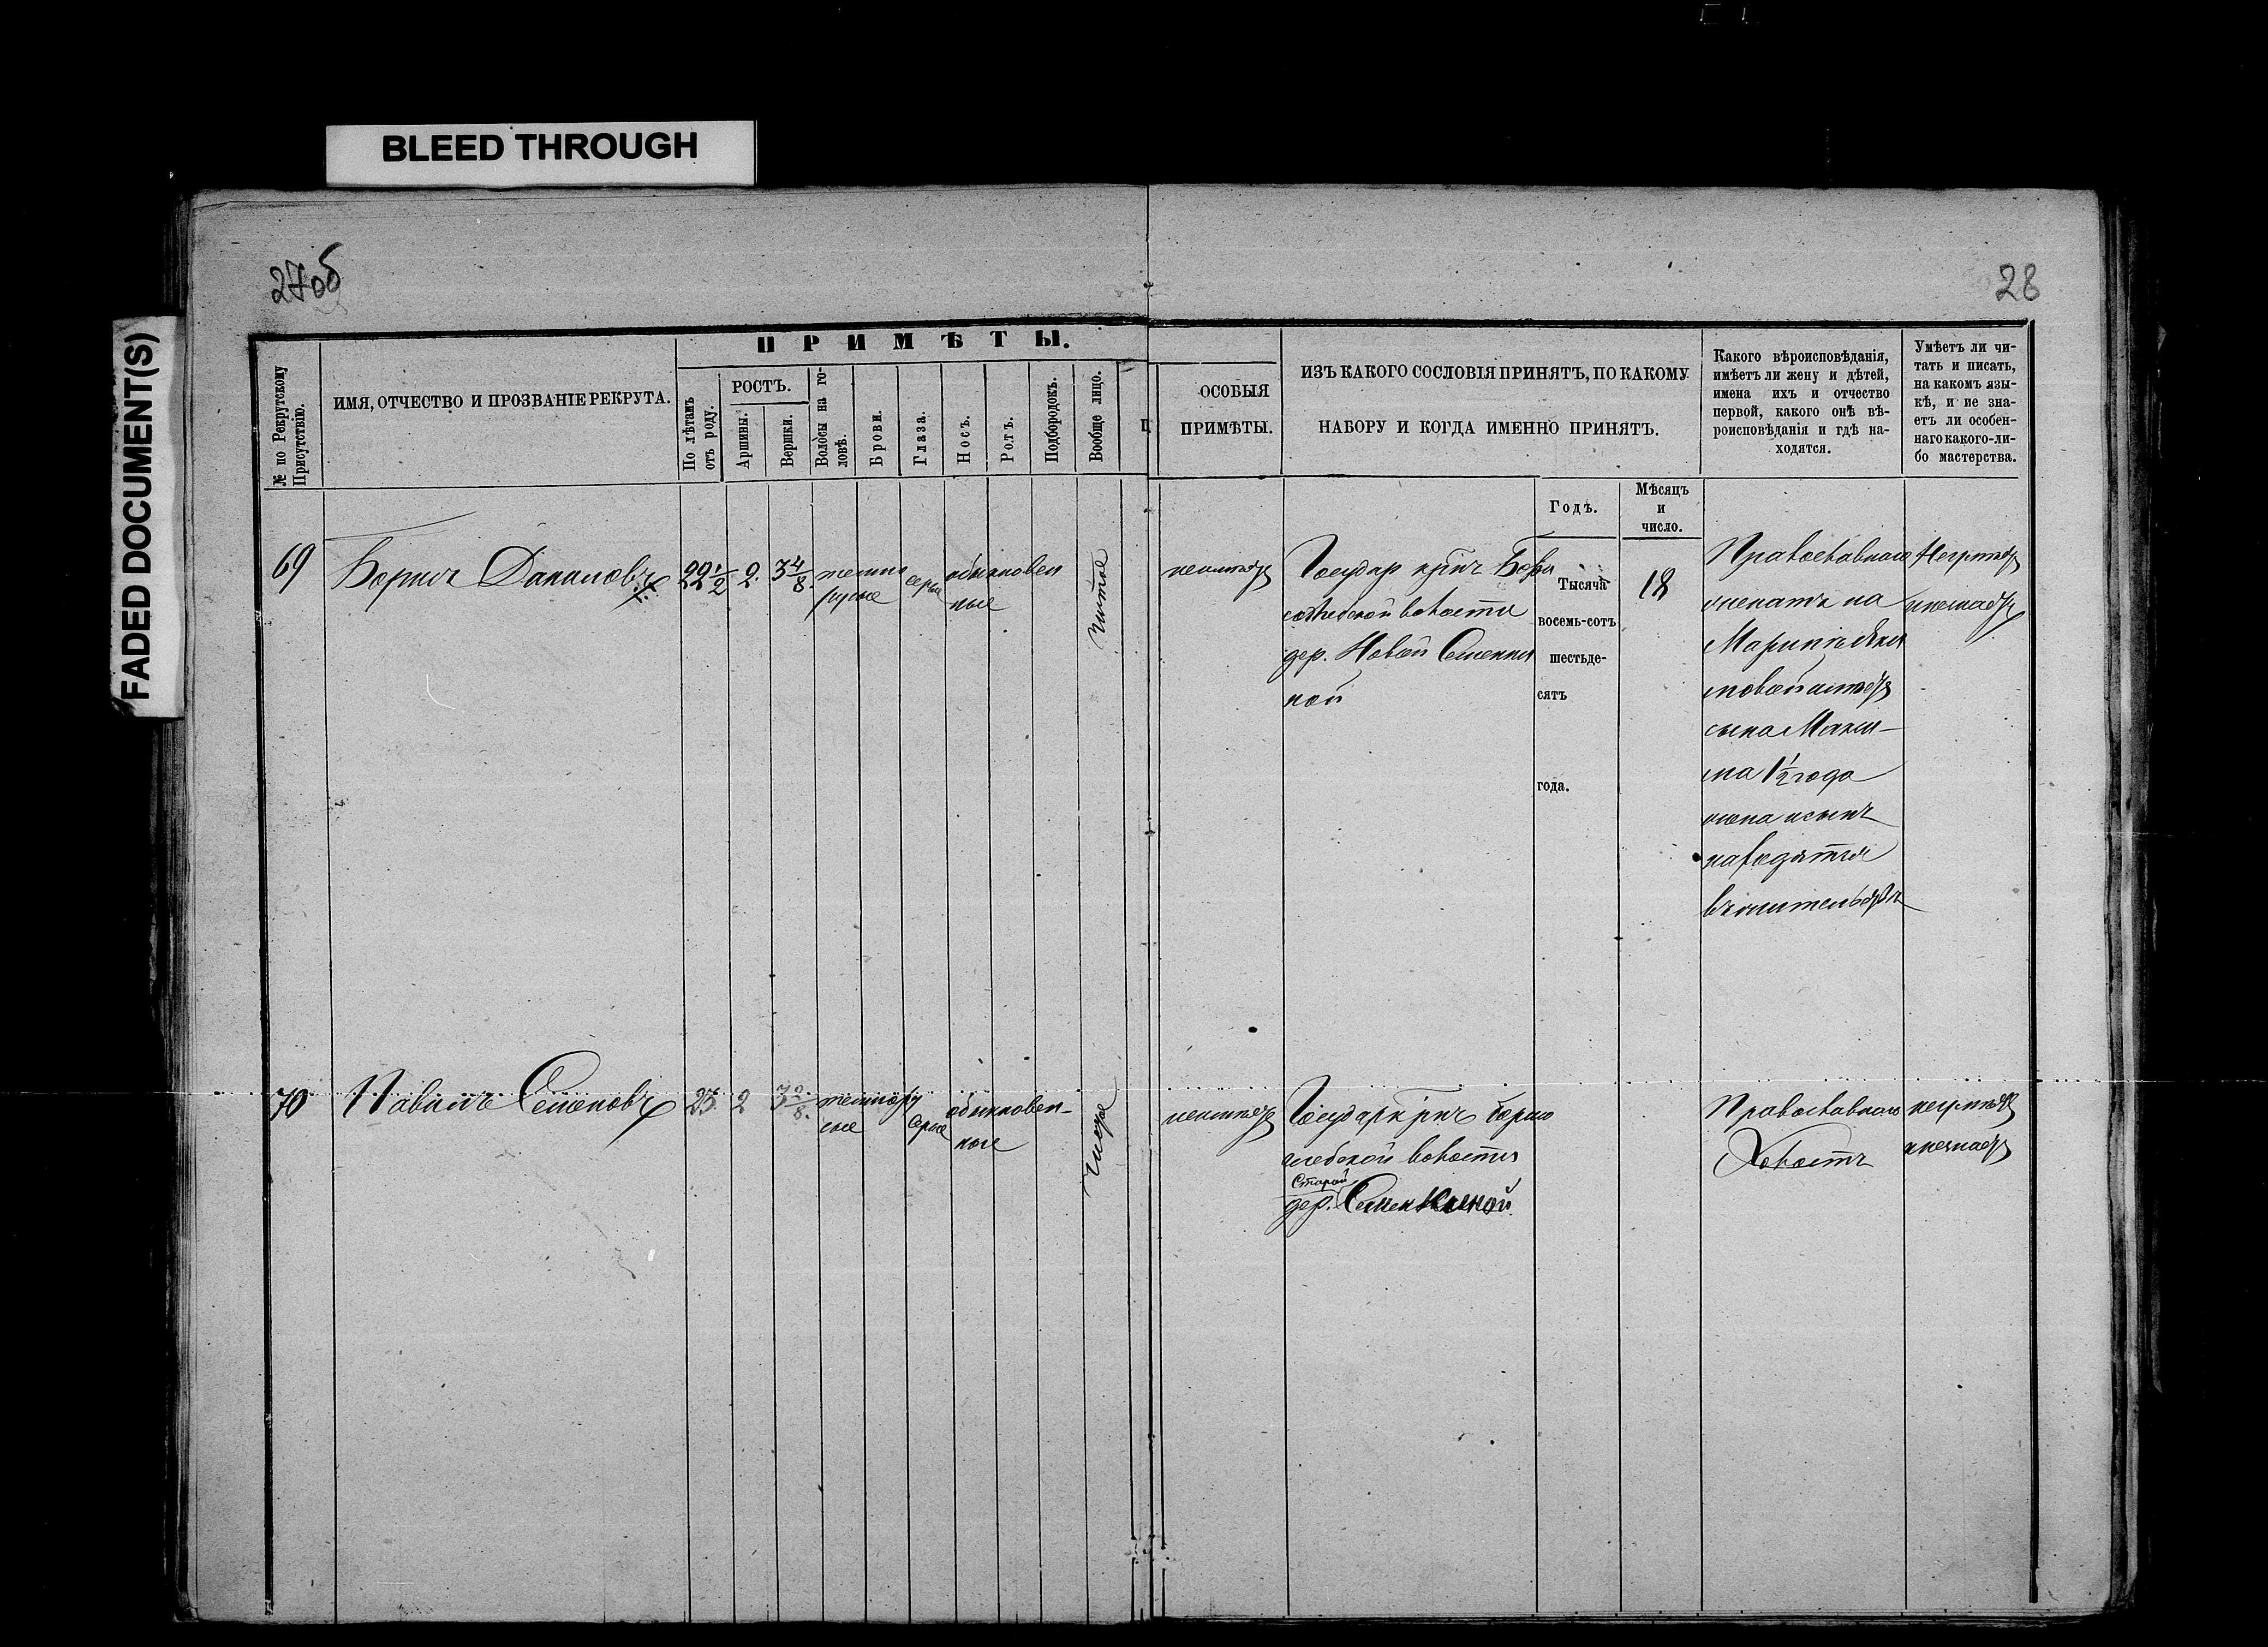 BLEED THROUGH
FADED DOCUMENT(S)
27об
28
ПРИМѢТЫ.
№ по Рекрутскому
Присутствію.
ИМЯ, ОТЧЕСТВО И ПРОЗВАНІЕ РЕКРУТА.
По лѣтамъ
отъ роду.
РОСТЪ.
Аршины.
Вершки.
Волосы на го-
ловѣ.
Брови.
Глаза.
Носъ.
Ротъ.
Подбородокъ.
Вообще лицо.
ОСОБЫЯ
ПРИМѢТЫ.
ИЗЪ КАКОГО СОСЛОВІЯ ПРИНЯТЪ, ПО КАКОМУ
НАБОРУ И КОГДА ИМЕННО ПРИНЯТЪ.
Какого вѣроисповѣданія,
имѣетъ ли жену и дѣтей,
имена ихъ и отчество
первой, какого онѣ вѣ-
роисповѣданія и гдѣ на-
ходятся.
Умѣетъ ли чи-
тать и писать,
на какомъ язы-
кѣ, и не зна-
етъ ли особен-
наго какого-ли-
бо мастерства.
Годъ.
Мѣсяцъ
и
число.
69
Борисъ
22 1/2
2.
3 4/8
темно
русые
серые
обыкновен
ные
чистое
неимѣетъ
Государ крн Бори
соглебской волости
дер. Новой Семенки
ной
Тысяча
восемь-сотъ
шестьде-
сятъ
года.
18
Православнаго
женатъ на
мовой имѣетъ
сына Макси-
ма 1 1/2 года
жена и сынъ
находятся
вжительствѣ
Неграмотѣ
инезнаетъ
70
Павелъ Семеновъ
23
2
3 2/8.
темнору
сые
серые
обыкновен-
ные
чистое
неимѣетъ
Государ крн Борисо
глебской волости
Старой
дер. Семенкиной
Православнаго
Холостъ
неграмотѣ
инезнаетъ